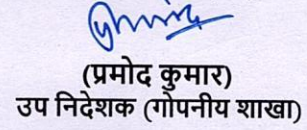 (प्रमोद कुमार)
उप निदेशक (गोपनीय शाखा)